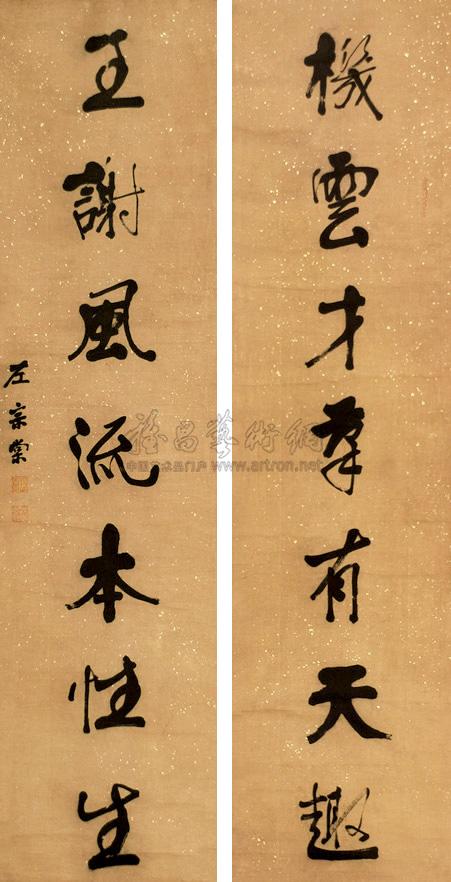 機雲才華有天趣
王謝風流本性生
左宗棠
雅昌藝術網
中国艺术品门户 www.artron.net